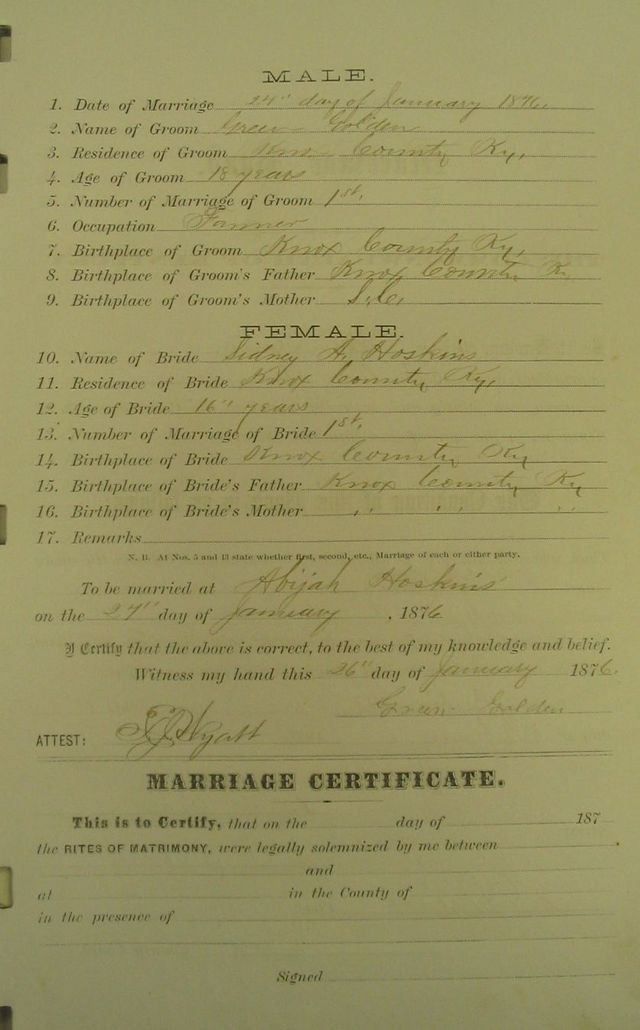 MALE.
1. Date of Marriage 27" day of January 1876,
2. Name of Groom Green Golden
3. Residence of Groom Knox County Ky,
4. Age of Groom 18 years
5. Number of Marriage of Groom 1st.
6. Occupation Farmer
7. Birthplace of Groom Knox County Ky,
8. Birthplace of Groom's Father Knox County Ky
9. Birthplace of Groom's Mother S.C.
FEMALE.
10. Name of Bride Sidney A. Hoskins
11. Residence of Bride Knox County Ky,
12. Age of Bride 16" years
13. Number of Marriage of Bride 1st.
14. Birthplace of Bride Knox County Ky
15. Birthplace of Bride's Father Knox County Ky
16. Birthplace of Bride's Mother " " "
17. Remarks
N. B. At Nos. 5 and 13 state whether first, second, etc., Marriage of each or either party.
To be married at Abijah Hoskins'
on the 27" day of January , 1876
I Certify that the above is correct, to the best of my knowledge and belief.
Witness my hand this 26" day of January 1876.
Green Golden
ATTEST: Wyatt
MARRIAGE CERTIFICATE.
This is to Certify, that on the day of 187
the RITES OF MATRIMONY, were legally solemnized by me between
and
at in the County of
in the presence of
Signed